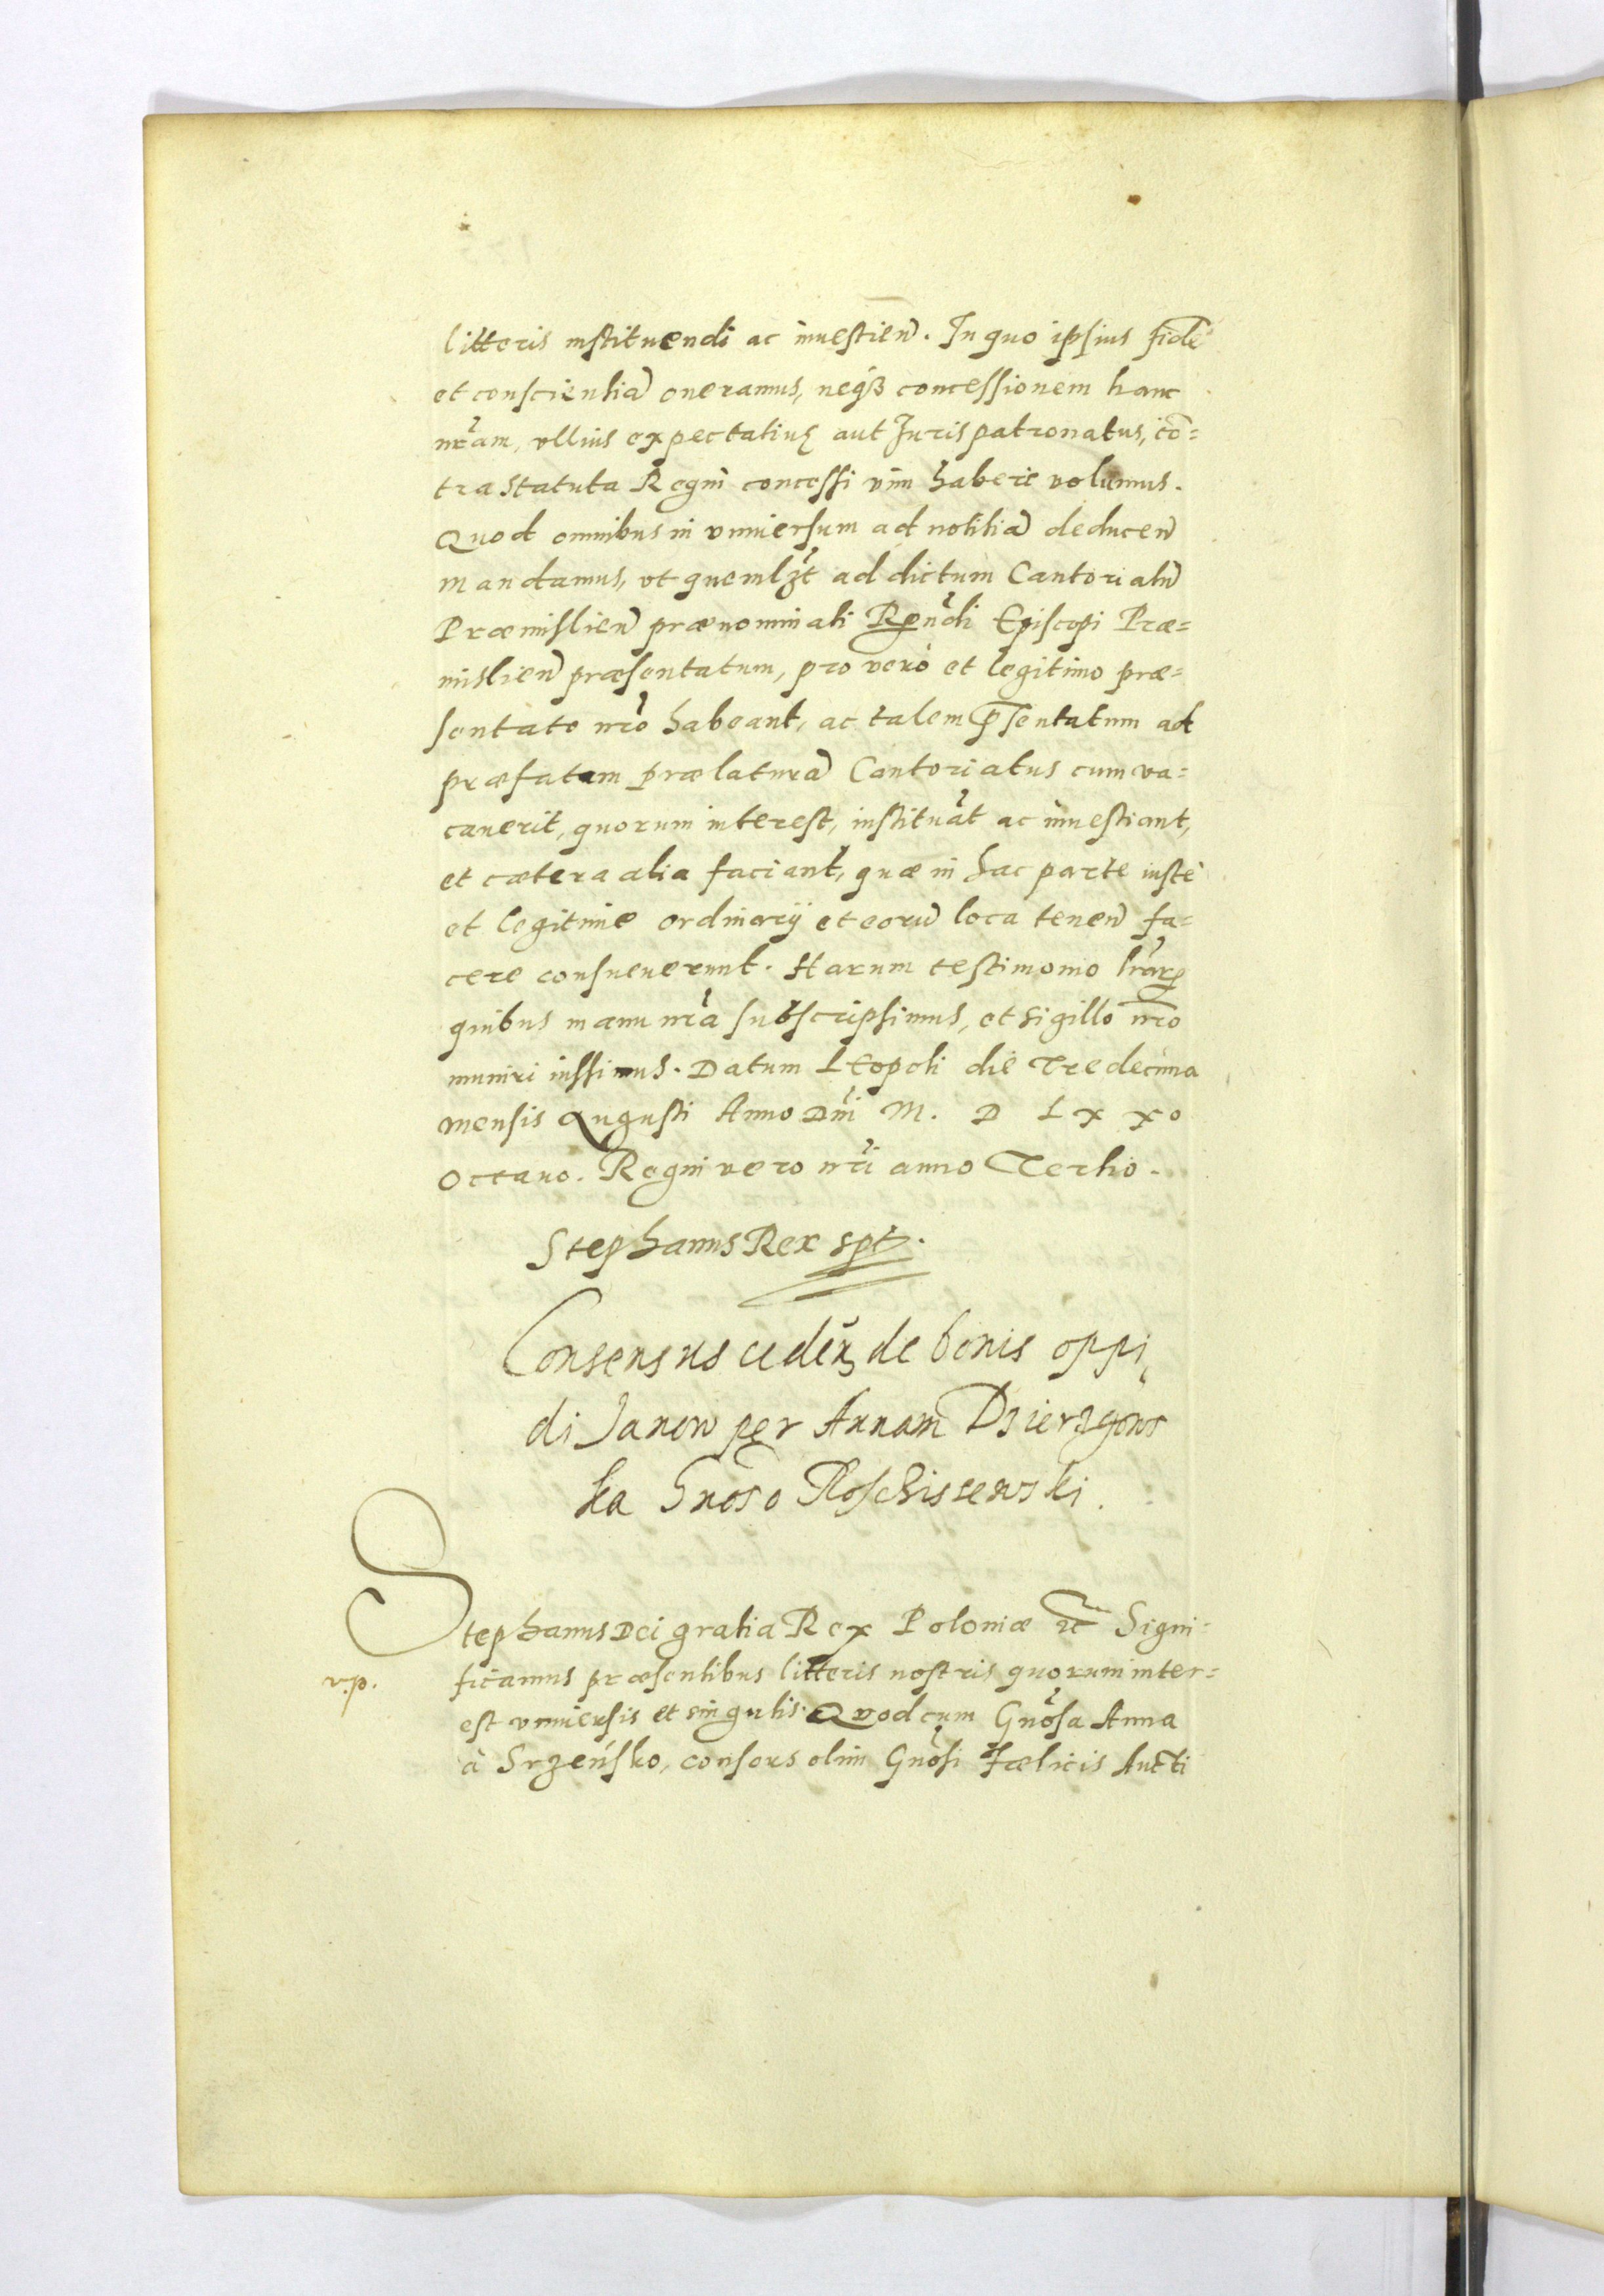 litteris instituendi ac inuestien̄. In quo ipsius fidē
et conscientiā oneramus, neq₃ concessionem hanc
nr̄am, vllius expectatiuę aut Juris patronatus, cō=
tra statuta Regni concessi vim habere volumus.
Quod omnibus in vniuersum ad notitiā deducen̄
mandamus, vt quemlꝫt ad dictum Cantoriatū
Præmislien̄ prænominati Rn̄di Episcopi Præ=
mislien̄ præsentatum, pro vero et legitimo præ=
sentato nr̄o habeant, ac talem p̄sentatum ad
præfatam prælaturā Cantoriatus cum va=
cauerit, quorum interest, instituāt ac inuestiant,
et cætera alia faciant, quæ in hac parte iustè
et legitime ordinarij et eorū loca tenen̄ fa=
cere consueuerunt. Harum testimonio lr̄arꝝ
quibus manu nr̄a subscripsimus, et sigillo nr̄o
muniri iussimus. Datum Leopoli die Tredecima
mensis Augusti Anno Dn̄i M. D L x x o
Octauo. Regni vero nr̄i anno Tertio.
Stephanus Rex spt.
Consensus ceden̄ de bonis oppi,
di Janow per Annam Dzierzgows
ka Gnoso Ploschissewski.
Stephanus Dei gratia Rex Poloniæ ꝛc̄ Signi=
v.p.
ficamus præsentibus litteris nostris quorum inter=
est vniuersis et singulis. Quod cum Gn̄osa Anna
à Srzeńsko, consors olim Gn̄osi Fælicis Aucti